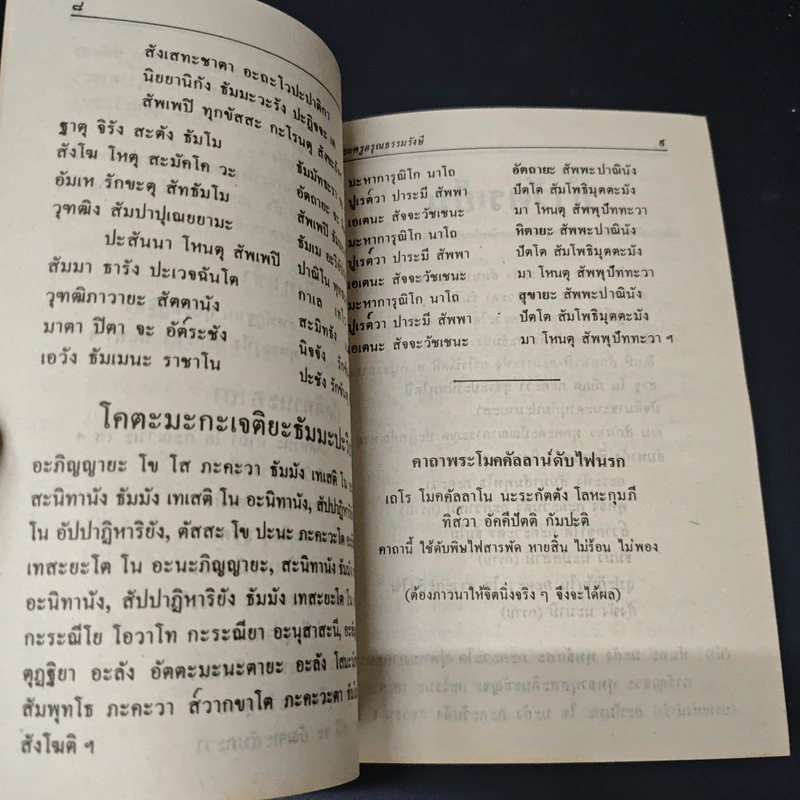 ๘
สังเสทะชาตา อะถะโวปะปาติกา
นิยยานิกัง ธัมมะวะรัง ปะฏิจจะ
สัพเพปี ทุกขัสสะ กะโรนตุ
ธาตุ จิรัง สะตัง ธัมโม
สังโฆ โหตุ สะมัคโค วะ
อัมเห รักขะตุ สัทธัมโม
วุฑฒิง สัมปาปุเณยยามะ
ปะสันนา โหนตุ สัพเพปี
สัมมา ธารัง ปะเวจฉันโต
วุฑฒิภาวายะ สัตตานัง
มาตา ปิตา จะ อัต๎ระชัง
เอวัง ธัมเมนะ ราชาโน
ธัมมัทะวา
อัตถายะ
สัพเพปี
ธัมเม
ปาณิโน
กาเล
สะนิทธัง
นิจจัง
ปะชัง
โคตะมะกะเจติยะธัมมะปะ
อะภิญญายะ โข โส ภะคะวา ธัมมัง เทเสติ โน
สะนิทานัง ธัมมัง เทเสติ โน อะนิทานัง, สัปปาฏิ
โน อัปปาฏิหาริยัง, ตัสสะ โข ปะนะ ภะคะวะโต
เทสะยะโต โน อะนะภิญญายะ, สะนิทานัง
อะนิทานัง, สัปปาฏิหาริยัง ธัมมัง เทสะยะโต
กะระณีโย โอวาโท กะระณียา อะนุสาสะนี,
ตุฏฐิยา อะลัง อัตตะมะนะตายะ อะลัง
สัมพุทโธ ภะคะวา ส๎วากขาโต ภะคะวะตา
สังโฆติ ฯ
ะครูอรุณธรรมรังษี ๙
มะหาการุณิโก นาโถ อัตถายะ สัพพะปาณินัง
ปูเรต๎วา ปาระมี สัพพา ปัตโต สัมโพธิมุตตะมัง
เอเตนะ สัจจะวัชเชนะ มา โหนตุ สัพพุปัททะวา
มะหาการุณิโก นาโถ หิตายะ สัพพะปาณินัง
ปูเรต๎วา ปาระมี สัพพา ปัตโต สัมโพธิมุตตะมัง
เอเตนะ สัจจะวัชเชนะ มา โหนตุ สัพพุปัททะวา
มะหาการุณิโก นาโถ สุขายะ สัพพะปาณินัง
ปูเรต๎วา ปาระมี สัพพา ปัตโต สัมโพธิมุตตะมัง
เอเตนะ สัจจะวัชเชนะ มา โหนตุ สัพพุปัททะวา ฯ
คาถาพระโมคคัลลาน์ดับไฟนรก
เถโร โมคคัลลาโน นะระกัตตัง โลหะกุมภี
ทิส๎วา อัคคีปัตติ กัมปะติ
คาถานี้ ใช้ดับพิษไฟสารพัด หายสิ้น ไม่ร้อน ไม่พอง
(ต้องภาวนาให้จิตนิ่งจริง ๆ จึงจะได้ผล)